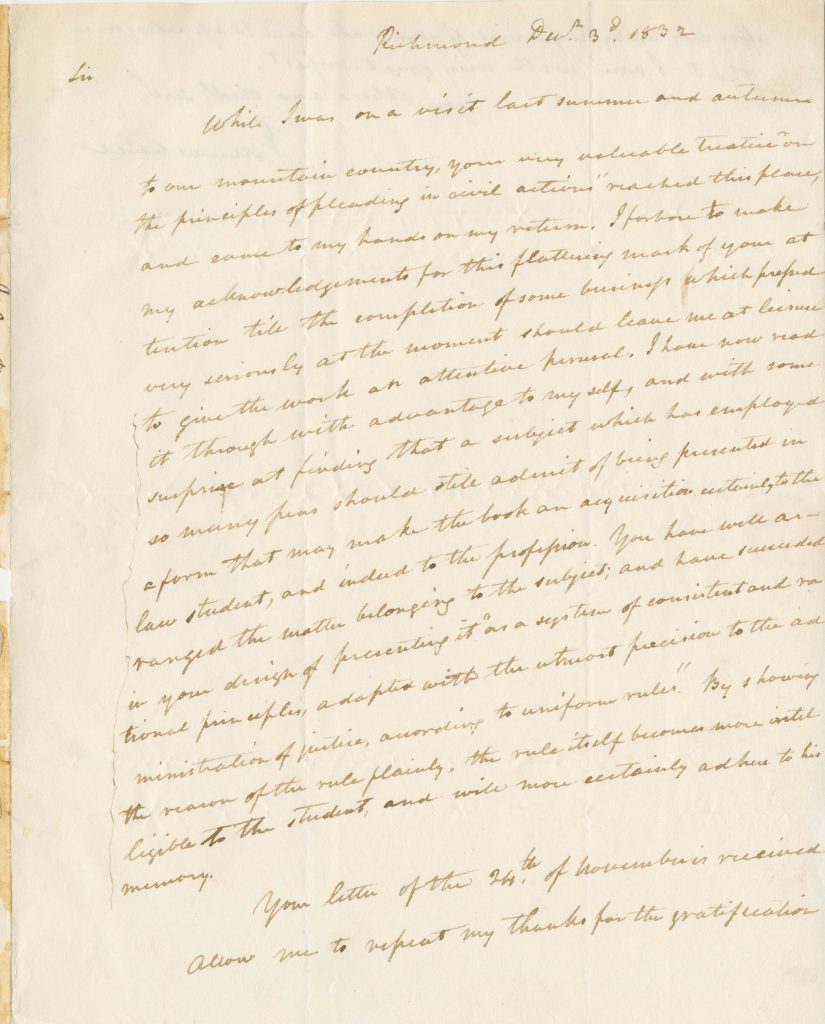 Richmond Decr. 3d. 1832
Sir
While I was on a visit last summer and autumn
to our mountain country, your very valuable treatise "on
the principles of pleading in civil actions" reached this place,
and came to my hands on my return. I forbore to make
my acknowledgements for this flattering mark of your at
tention till the completion of some business which pressed
very seriously at the moment should leave me at leisure
to give the work an attentive perusal. I have now read
it through with advantage to myself, and with some
surprise at finding that a subject which has employed
so many pens should still admit of being presented in
a form that may make the book an acquisition certainly to the
law student, and indeed to the profession. You have well ar-
ranged the matter belonging to the subject; and have succeeded
in your design of presenting it "as a system of consistent and ra
tional principles, adapted with the utmost precision to the ad
ministration of justice, according to uniform rules." By showing
the reason of the rule plainly, the rule itself becomes more intel
ligible to the student, and will more certainly adhere to his
memory.
Your letter of the 24th. of November is received
Allow me to repeat my thanks for the gratification